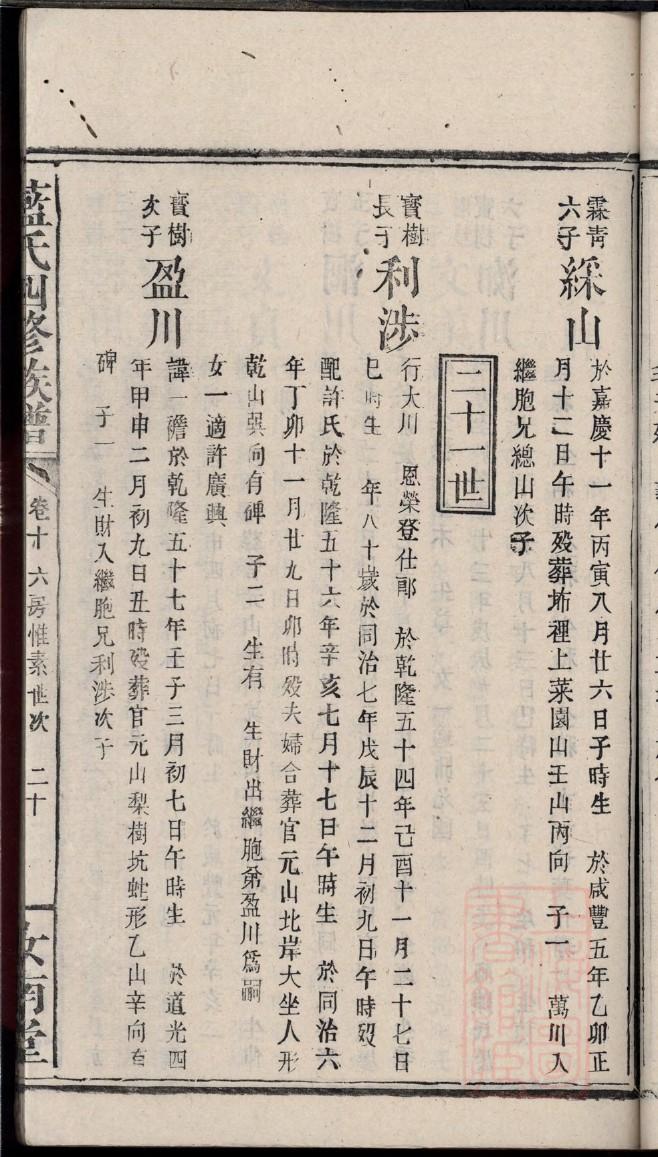 霖青
六子
綵山
於嘉慶十一年丙寅八月廿六日子時生　於咸豐五年乙卯正
月十二日午時歿葬坳裡上菜園山壬山丙向　子一　萬川入
繼胞兄總山次子
二十一世
寳樹
長子
利涉
行大川　恩榮登仕郎　於乾隆五十四年己酉十一月二十七日
巳時生　年八十歲於同治七年戊辰十二月初九日午時歿
配許氏於乾隆五十六年辛亥七月十七日午時生　於同治六
年丁卯十一月廿九日卯時歿夫婦合葬官元山北岸大坐人形
乾山巽向有碑　子二　生有　生財出繼胞弟盈川爲嗣
女一適許廣興
寳樹
次子
盈川
諱一簷於乾隆五十七年壬子三月初七日午時生　於道光四
年甲申二月初九日丑時歿葬官元山梨樹坑虵形乙山辛向有
碑　子一　生財入繼胞兄利涉次子
藍氏四修族譜　卷十　六房惟素世次　二十　汝南堂